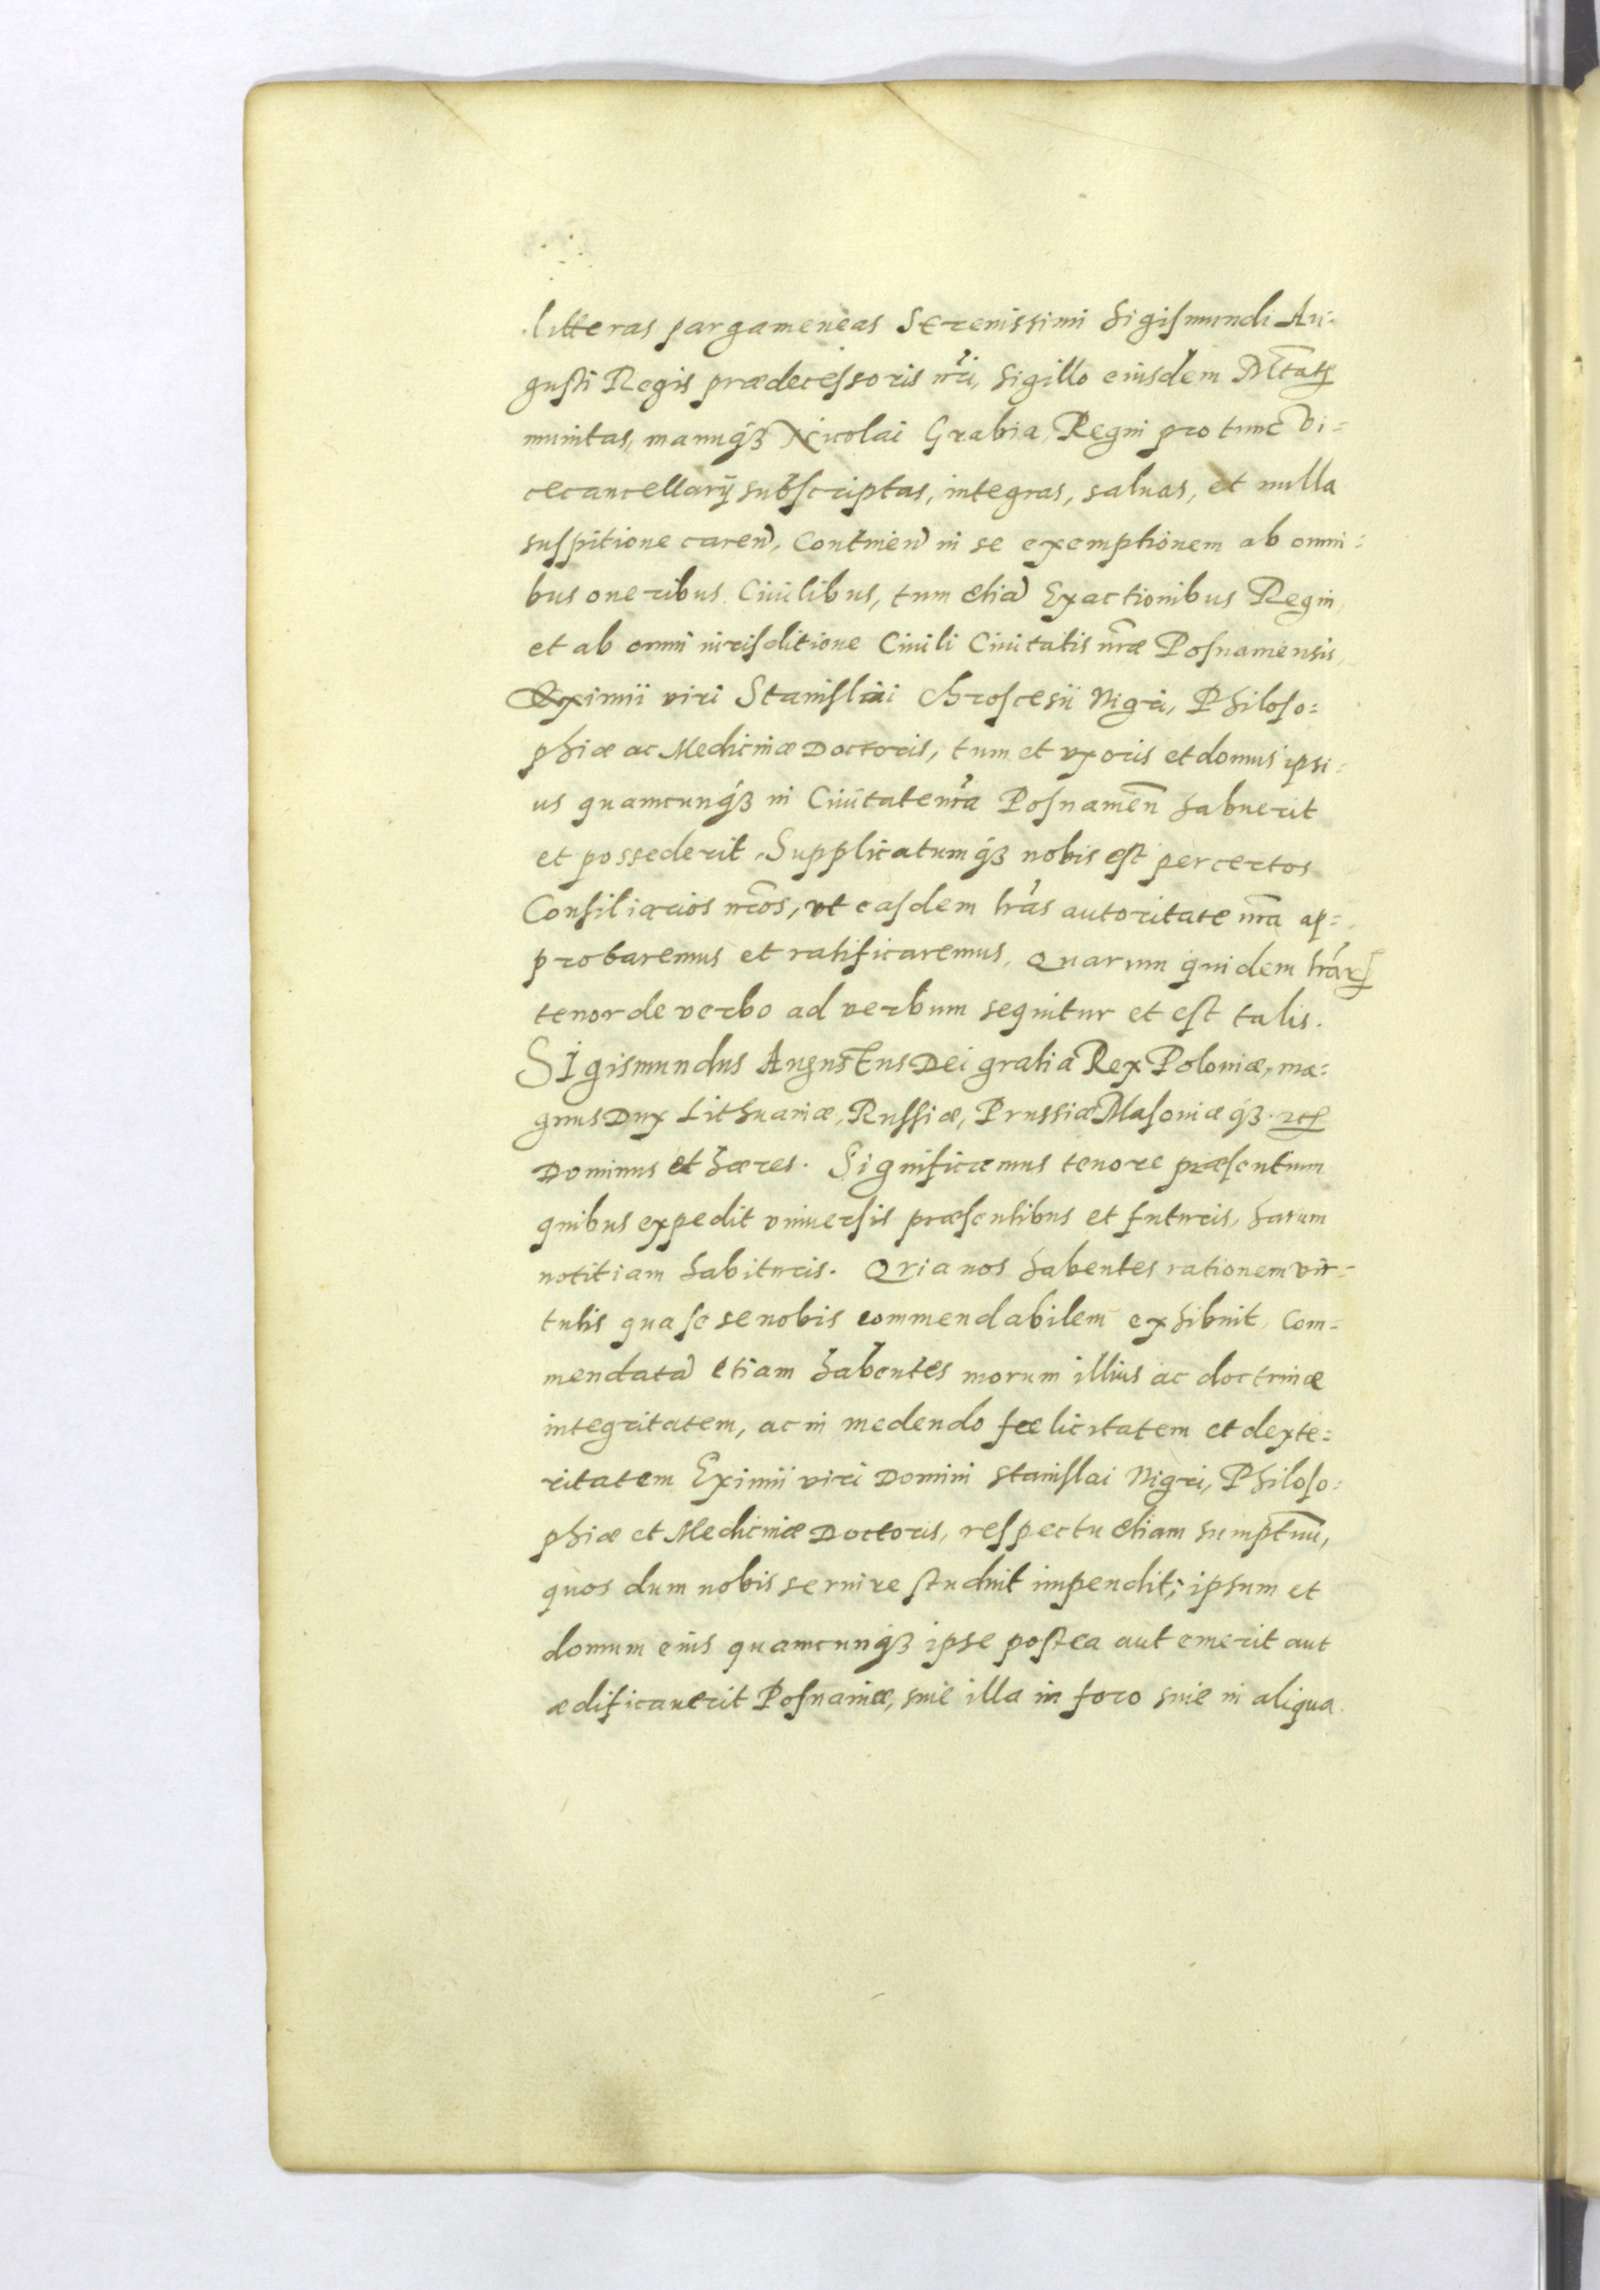 litteras pargameneas Serenissimi Sigismundi Au-
gusti Regis prædecessoris nr̃i, sigillo eiusdem Mtatis
munitas, manuq3 Nicolai Grabia, Regni pro tunc Vi=
cecancellarij subscriptas, integras, saluas, et nulla
suspitione caren̄, Continen̄ in se exemptionem ab omni=
bus oneribus Ciuilibus, tum etiā Exactionibus Regni,
et ab omni iurisditione Ciuili Ciuitatis nr̃æ Posnamensis,
Eximii viri Stanislai Chroscesii Nigri, Philoso=
phiæ ac Medicinæ Doctoris, tum et vxoris et domus ipsi=
us quamcunq3 in Ciuitate nr̃a Posnamen̄ habuerit
et possederit. Supplicatumq3 nobis est per certos
Consiliarios nr̃os, vt easdem lr̃as autoritate nr̃a ap=
probaremus et ratificaremus. Quarum quidem lr̃arꝝ
tenor de verbo ad verbum sequitur et est talis.
SIgismundus Augustus Dei gratia Rex Poloniæ, ma=
gnus Dux Lithuaniæ, Russiæ, Prussiæ Masouiæ q3. etc
Dominus et hæres. Significamus tenore præsentium
quibus expedit vniuersis præsentibus et futuris, harum
notitiam habituris. Quia nos habentes rationem vir=
tutis qua se se nobis commendabilem exhibuit, Com=
mendatā etiam habentes morum illius ac doctrinæ
integritatem, ac in medendo fœlicitatem et dexte=
ritatem Eximii viri Domini Stanislai Nigri, Philoso=
phiæ et Medicinæ Doctoris, respectu etiam sumptuū,
quos dum nobis seruire studuit impendit; ipsum et
domum eius quamcunq3 ipse postea aut emerit aut
ædificauerit Posnaniæ, siue illa in foro siue in aliqua